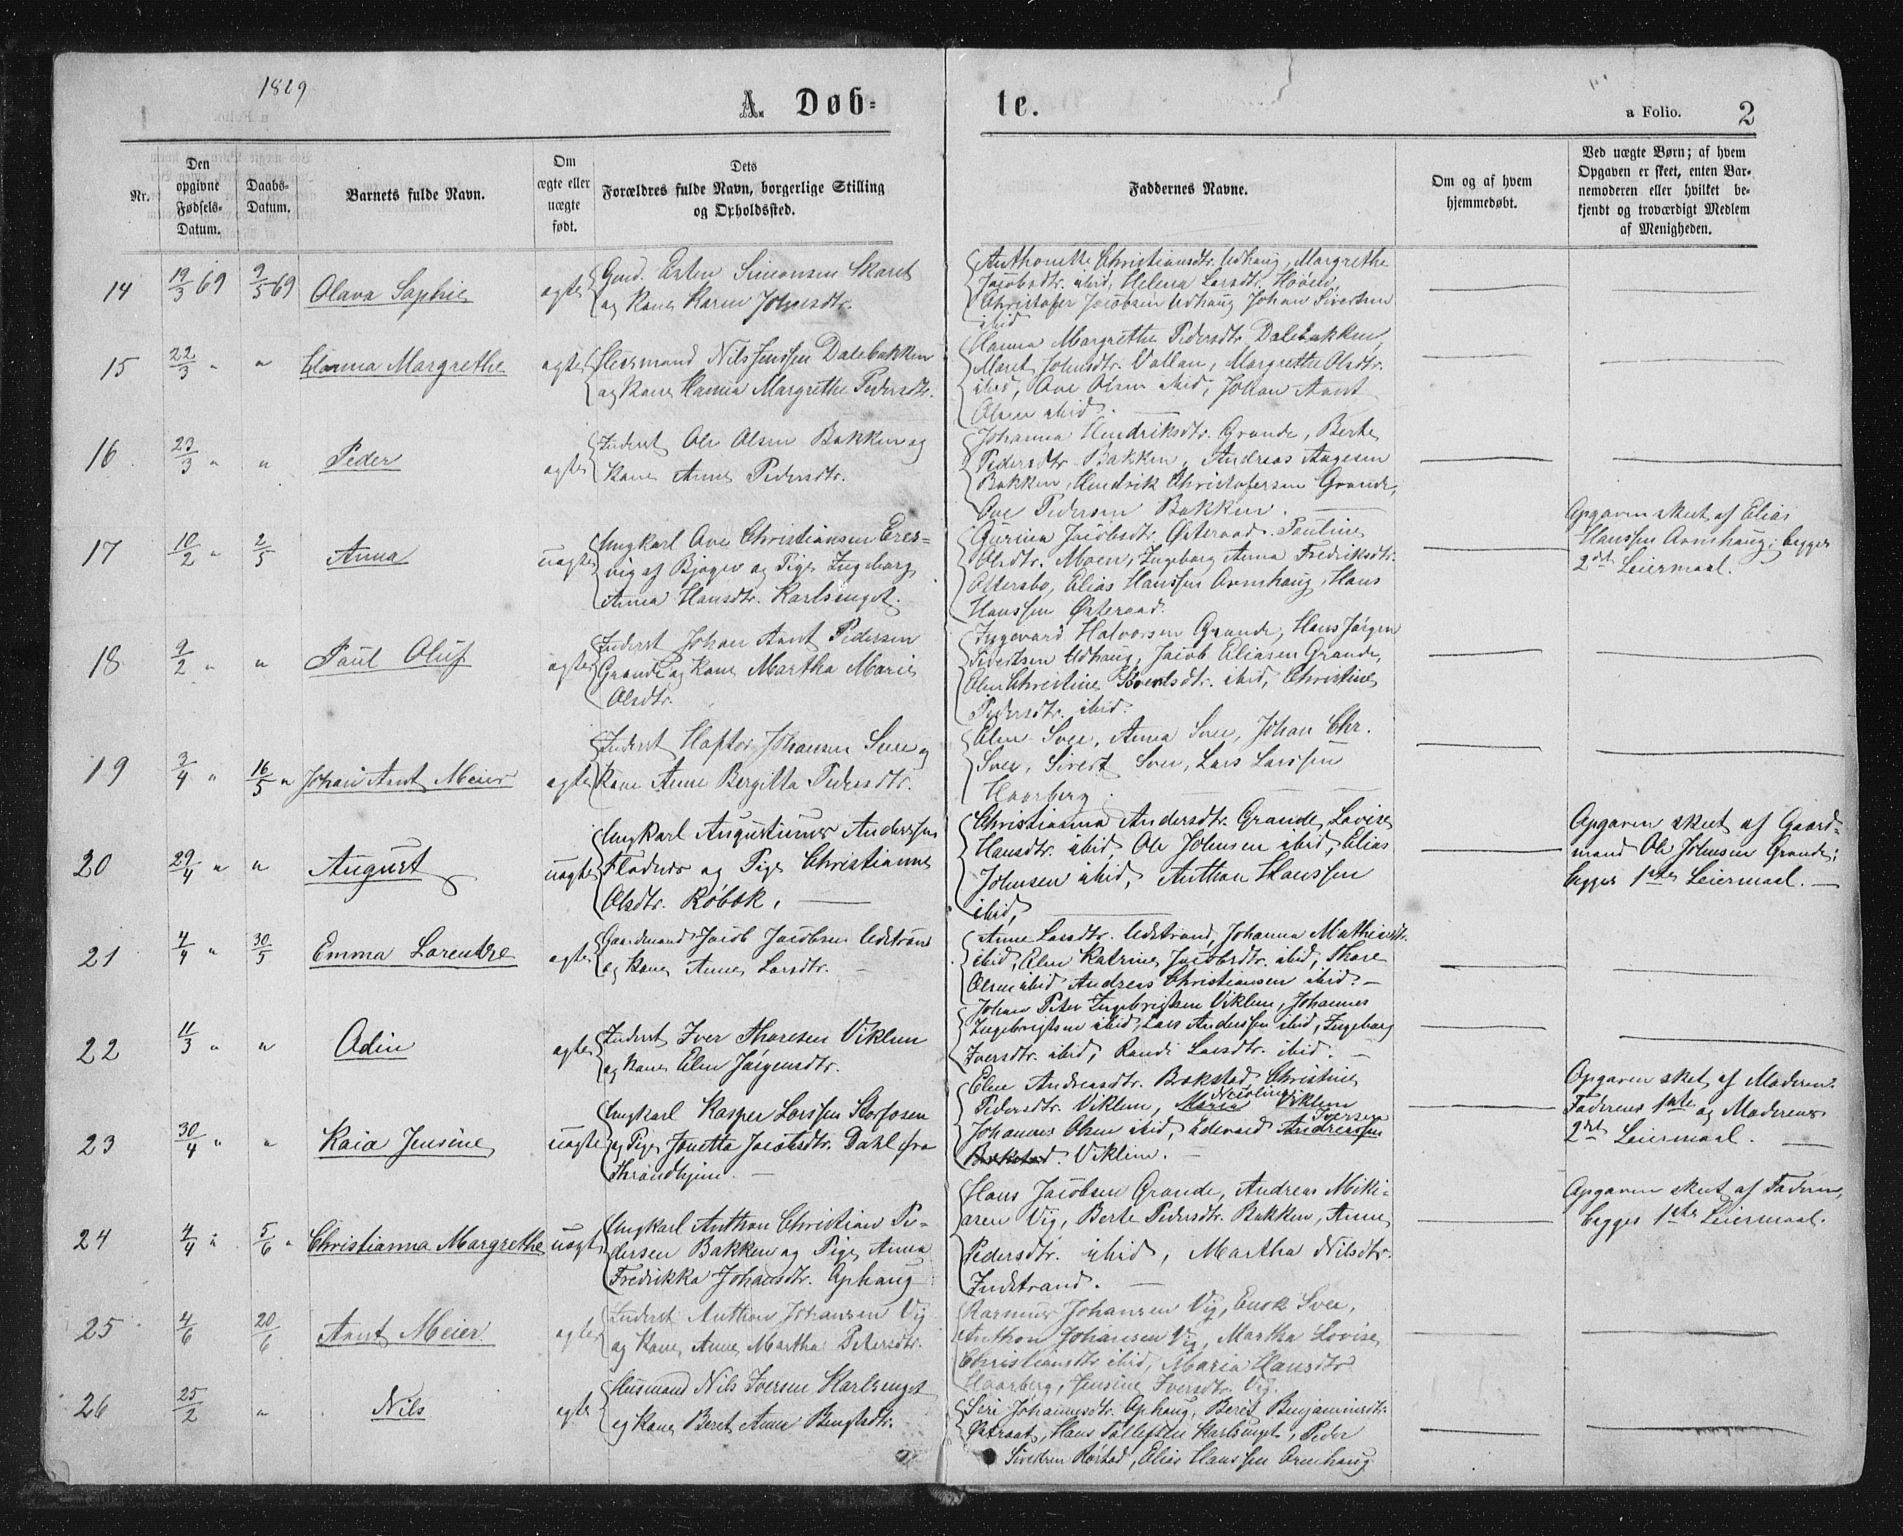 1869
A. Døb-
te.
a Folio. 2
Nr.
Den opgivne Fødsels-Datum.
Daabs-Datum.
Barnets fulde Navn.
Om ægte eller uægte født.
Dets
Forældres fulde Navn, borgerlige Stilling
og Opholdssted.
Faddernes Navne.
Om og af hvem
hjemmedøbt.
Ved uægte Børn; af hvem
Opgaven er skeet, enten Bar-
nemoderen eller hvilket be-
kjendt og troværdigt Medlem
af Menigheden.
14 19/3 69 9/5 69 Olava Sophie ægte
Gmd. Esten Simonsen Skaret
og Kone Karen Johnsdtr.
Anthonette Christiansdtr. Udhaug, Margrethe
Jacobsdtr. ibid, Helena Larsdtr. Høven,
Christofer Jacobsen Udhaug Johan Sivertsen
ibid
15 22/3 " " Hanna Margrethe ægte
Husmand Nils Jenssen Dalebakken
og Kone Hanna Margrethe Pedersdtr.
Hanna Margrethe Pedersdtr. Dalebakken,
Maret Johnsdtr. Vallan, Margrethe Olsdtr.
ibid, Ove Olsen ibid, Johan Arnt
Olsen ibid.
16 23/3 " " Peder ægte
Inderst Ole Olsen Bakken og
Kone Anne Pedersdtr.
Johanna Hendriksdtr. Grande, Berte
Pedersdtr. Bakken, Andreas Aagesen
Bakken, Hendrik Christofersen Grande,
Ove Pedersen Bakken.
17 10/2 " 2/5 Anna uægte
Ungkarl Ove Christiansen Eres-
vig af Bjugn og Pige Ingeborg
Anna Hansdtr. Karlsenget.
Gurina Jacobsdtr. Østeraad. Pauline
Olsdtr. Moen, Ingeborg Anna Fredriksdtr.
Ottersbo, Elias Hanssen Ovnhaug, Hans
Hanssen Østeraad.
Opgaven skeet af Elias
Hanssen Ovnhaug; begges
2det Leiermaal.
18 9/2 " " Paul Oluf ægte
Inderst Johan Arnt Pedersen
Grande og Kone Martha Marie
Olsdtr.
Ingevard Halvorsen Grande, Hans Jørgen
Sivertsen Udhaug, Jacob Eliasen Grande,
Elen Christine Sivertsdtr. ibid, Christine
Pedersdtr. ibid.
19 3/4 " 16/5 " Johan Arnt Meier ægte
Inderst Haftor Johansen Svee og
Kone Anne Bergitta Pedersdtr.
Elen Svee, Anna Svee, Johan Chr.
Svee, Sivert Svee, Lars Larssen
Haarberg.
20 29/4 " " August uægte
Ungkarl Augustinus Anderssen
Fladnes og Pige Christianna
Olsdtr. Røbæk.
Christianna Andersdtr. Grande, Lovise
Hansdtr. ibid Ole Johnsen ibid, Elias
Johnsen ibid, Anthon Hanssen
ibid,
Opgaven skeet af Gaard-
mand Ole Johnsen Grande;
begges 1ste Leiermaal.
21 4/4 " 30/5 Emma Lorentze ægte
Gaardmand Jacob Jacobsen Udstrand
og Kone Anne Larsdtr.
Anne Larsdtr. Udstrand, Johanna Mathiasdtr.
ibid, Elen Katrine Jacobsdtr. ibid, Thore
Olsen ibid Andreas Christiansen ibid.
22 11/3 " " Odin ægte
Inderst Iver Thoresen Viklem
og Kone Elen Jørgensdtr.
Johan Peter Ingebrigtsen Viklem, Johannes
Ingebrigtsen ibid, Lars Anderssen ibid, Ingeborg
Iversdtr. ibid, Randi Larsdtr. ibid.
23 30/4 " " Kaia Jensine uægte
Ungkarl Kasper Larssen Storfosen
og Pige Jonetta Jacobsdtr. Dahl fra
Throndhjem.
Elen Andreasdtr. Brekstad Christine
Pedersdtr. Viklem, Maria Nicoline Viklem
Johannes Olsen ibid, Edevard Andreassen Iversen
Brekstad. Viklem.
Opgaven skeet af Moderen.
Faderens 1ste og Moderens
2det Leiermaal.
24 4/4 " 5/6 " Christianna Margrethe uægte
Ungkarl Anthon Christian Pe-
dersen Bakken og Pige Anna
Fredrikka Johansdtr. Ophaug
Hans Jacobsen Grande, Andreas Miki-
arsen Vig, Berte Pedersdtr. Bakken, Anne
Pedersdtr. ibid, Martha Nilsdtr.
Indstrand.
Opgaven skeet af Faderen,
begges 1ste Leiermaal.
25 4/6 20/6 Arnt Meier ægte
Inderst Anthon Johansen Vig
og Kone Anne Martha Petersdtr.
Rasmus Johansen Vig, Enok Svee,
Anthon Johansen Vig, Martha Lovise
Christiansdtr ibid, Maria Hansdtr.
Haarberg, Jensine Iversdtr. Vig.
26 25/2 " Nils ægte
Husmand Nils Iversen Karlsenget
og Kone Beret Anna Bengtsdtr.
Siri Johannesdtr. Ophaug, Beret Benjaminsdtr.
Østraat, Hans Tollefsen Karlsenget, Peder
Sivertsen Rørstad, Elias Hanssen Ovnhaug